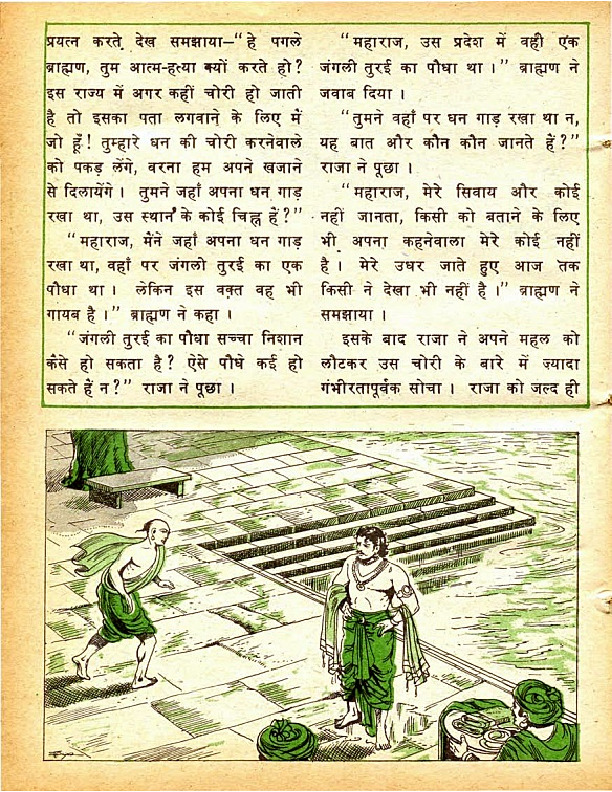 प्रयत्न करते देख समझाया—“हे पगले
ब्राह्मण, तुम आत्म-हत्या क्यों करते हो?
इस राज्य में अगर कहीं चोरी हो जाती
है तो इसका पता लगवाने के लिए मैं
जो हूँ! तुम्हारे धन की चोरी करनेवाले
को पकड़ लेंगे, वरना हम अपने खजाने
से दिलायेंगे। तुमने जहाँ अपना धन गाड़
रखा था, उस स्थान के कोई चिह्न हैं?”
“महाराज, मैंने जहाँ अपना धन गाड़
रखा था, वहाँ पर जंगली तुरई का एक
पौधा था। लेकिन इस वक़्त वह भी
गायब है।” ब्राह्मण ने कहा॥
“जंगली तुरई का पौधा सच्चा निशान
कैसे हो सकता है? ऐसे पौधे कई हो
सकते हैं न?” राजा ने पूछा।
“महाराज, उस प्रदेश में वही एक
जंगली तुरई का पौधा था।” ब्राह्मण ने
जवाब दिया।
“तुमने वहाँ पर धन गाड़ रखा था न,
यह बात और कौन कौन जानते हैं?”
राजा ने पूछा।
“महाराज, मेरे सिवाय और कोई
नहीं जानता, किसी को बताने के लिए
भी अपना कहनेवाला मेरे कोई नहीं
है। मेरे उधर जाते हुए आज तक
किसी ने देखा भी नहीं है।” ब्राह्मण ने
समझाया।
इसके बाद राजा ने अपने महल को
लौटकर उस चोरी के बारे में ज़्यादा
गंभीरतापूर्वक सोचा। राजा को जल्द ही